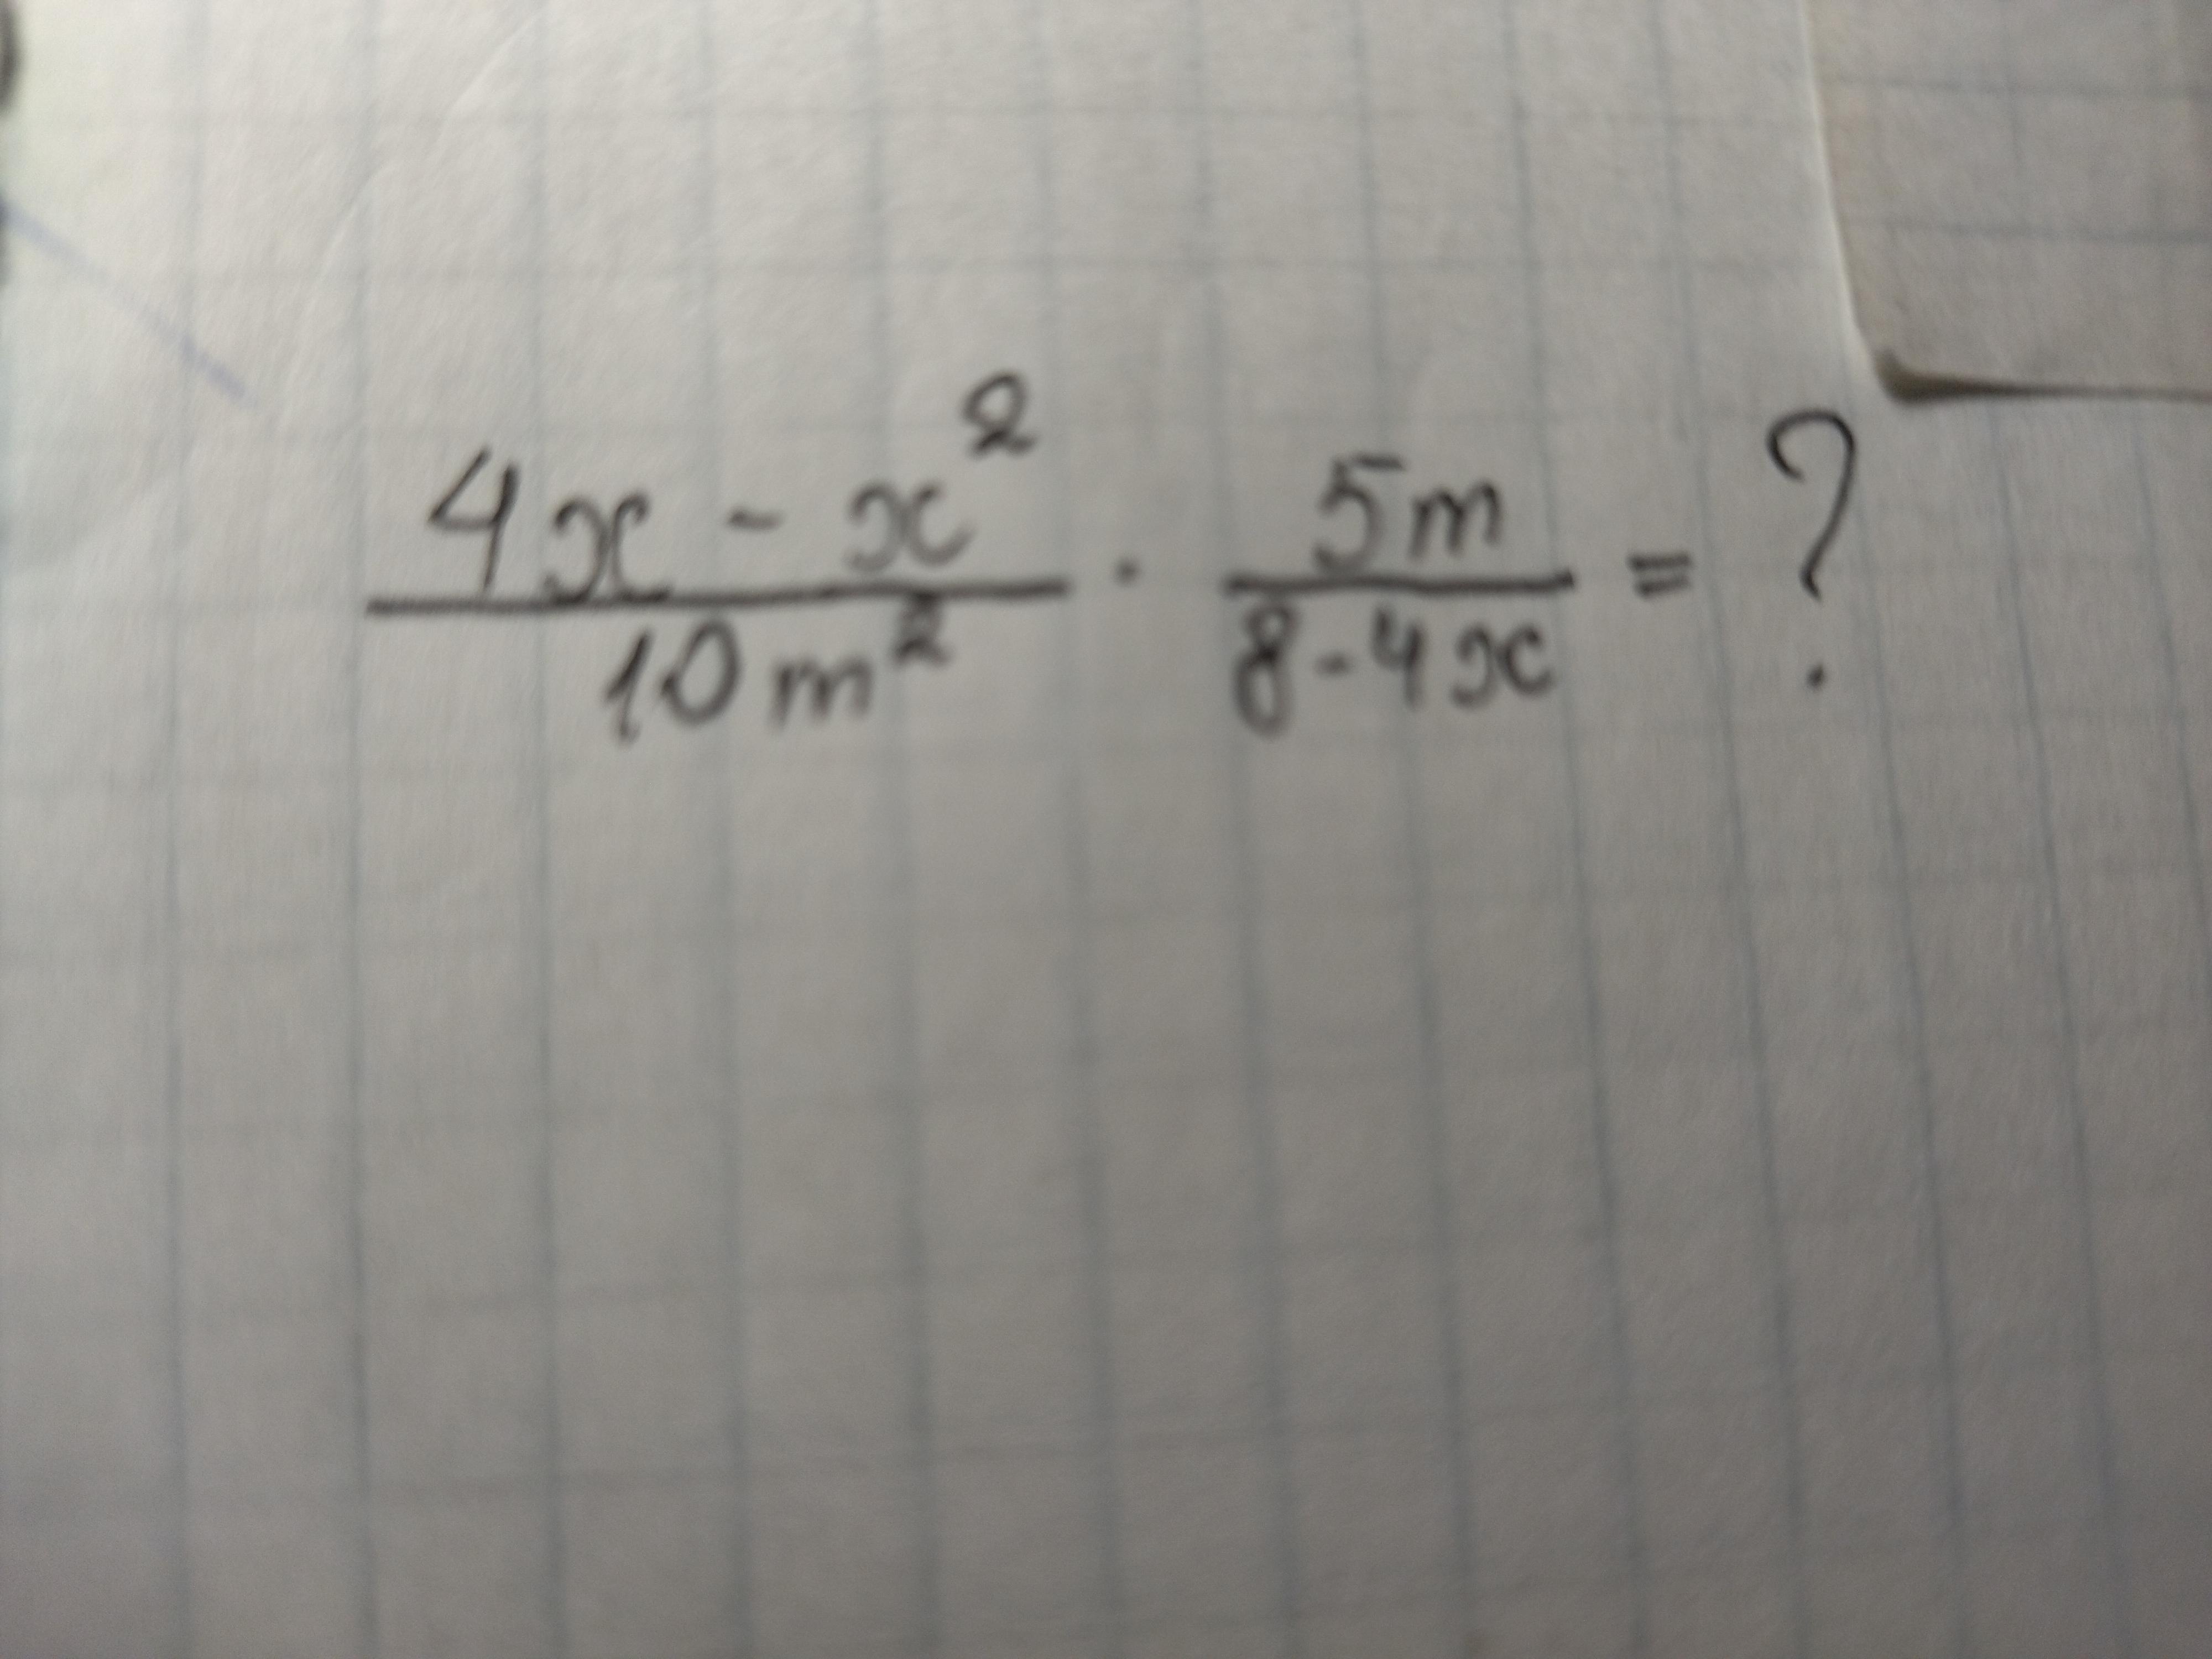 (4x - x²)/(10m²) · (5m)/(8-4x) = ?